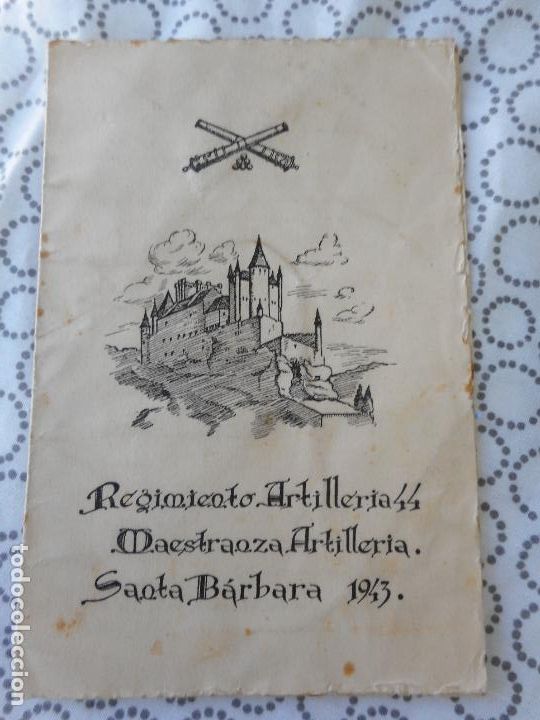 Regimiento Artilleria 44
.Maestranza Artilleria.
Santa Bárbara 1943.
todocoleccion.net